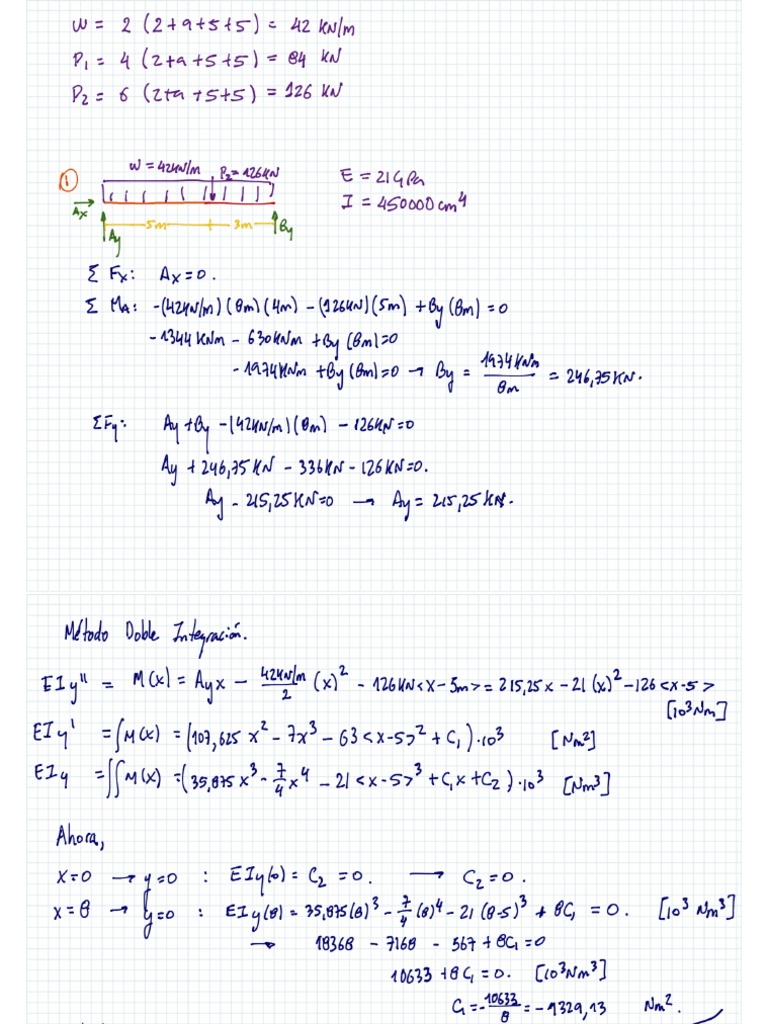 W = 2 (2+9+5+5) = 42 KN/m
P1 = 4 (2+9+5+5) = 84 KN
P2 = 6 (2+9+5+5) = 126 KN
W = 42KN/m P2=126KN
1
E = 21GPa
I = 450000cm⁴
Ax
5m 3m
Ay By
Σ Fx: Ax=0.
Σ MA: -(42KN/m)(8m)(4m) - (126KN)(5m) + By(8m) = 0
-1344 KNm - 630KNm + By(8m)=0
-1974KNm + By(8m)=0 → By = 1974KNm / 8m = 246,75KN.
ΣFy: Ay + By - (42KN/m)(8m) - 126KN=0
Ay + 246,75KN - 336KN - 126KN=0.
Ay - 215,25KN=0 → Ay = 215,25KN.
Método Doble Integración.
EIy'' = M(x) = Ayx - 42KN/m / 2 (x)² - 126KN<x-5m> = 215,25x - 21(x)² - 126<x-5>
[10³Nm]
EIy' = ∫M(x) = (107,625x² - 7x³ - 63<x-5>² + C1)·10³ [Nm²]
EIy = ∫∫M(x) = (35,875x³ - 7/4 x⁴ - 21<x-5>³ + C1x + C2)·10³ [Nm³]
Ahora,
x=0 → y=0 : EIy(0) = C2 = 0. → C2 = 0.
x=8 → y=0 : EIy(8) = 35,875(8)³ - 7/4 (8)⁴ - 21(8-5)³ + 8C1 = 0. [10³ Nm³]
→ 18368 - 7168 - 567 + 8C1 = 0
10633 + 8C1 = 0. [10³Nm³]
C1 = -10633 / 8 = -1329,13 Nm².